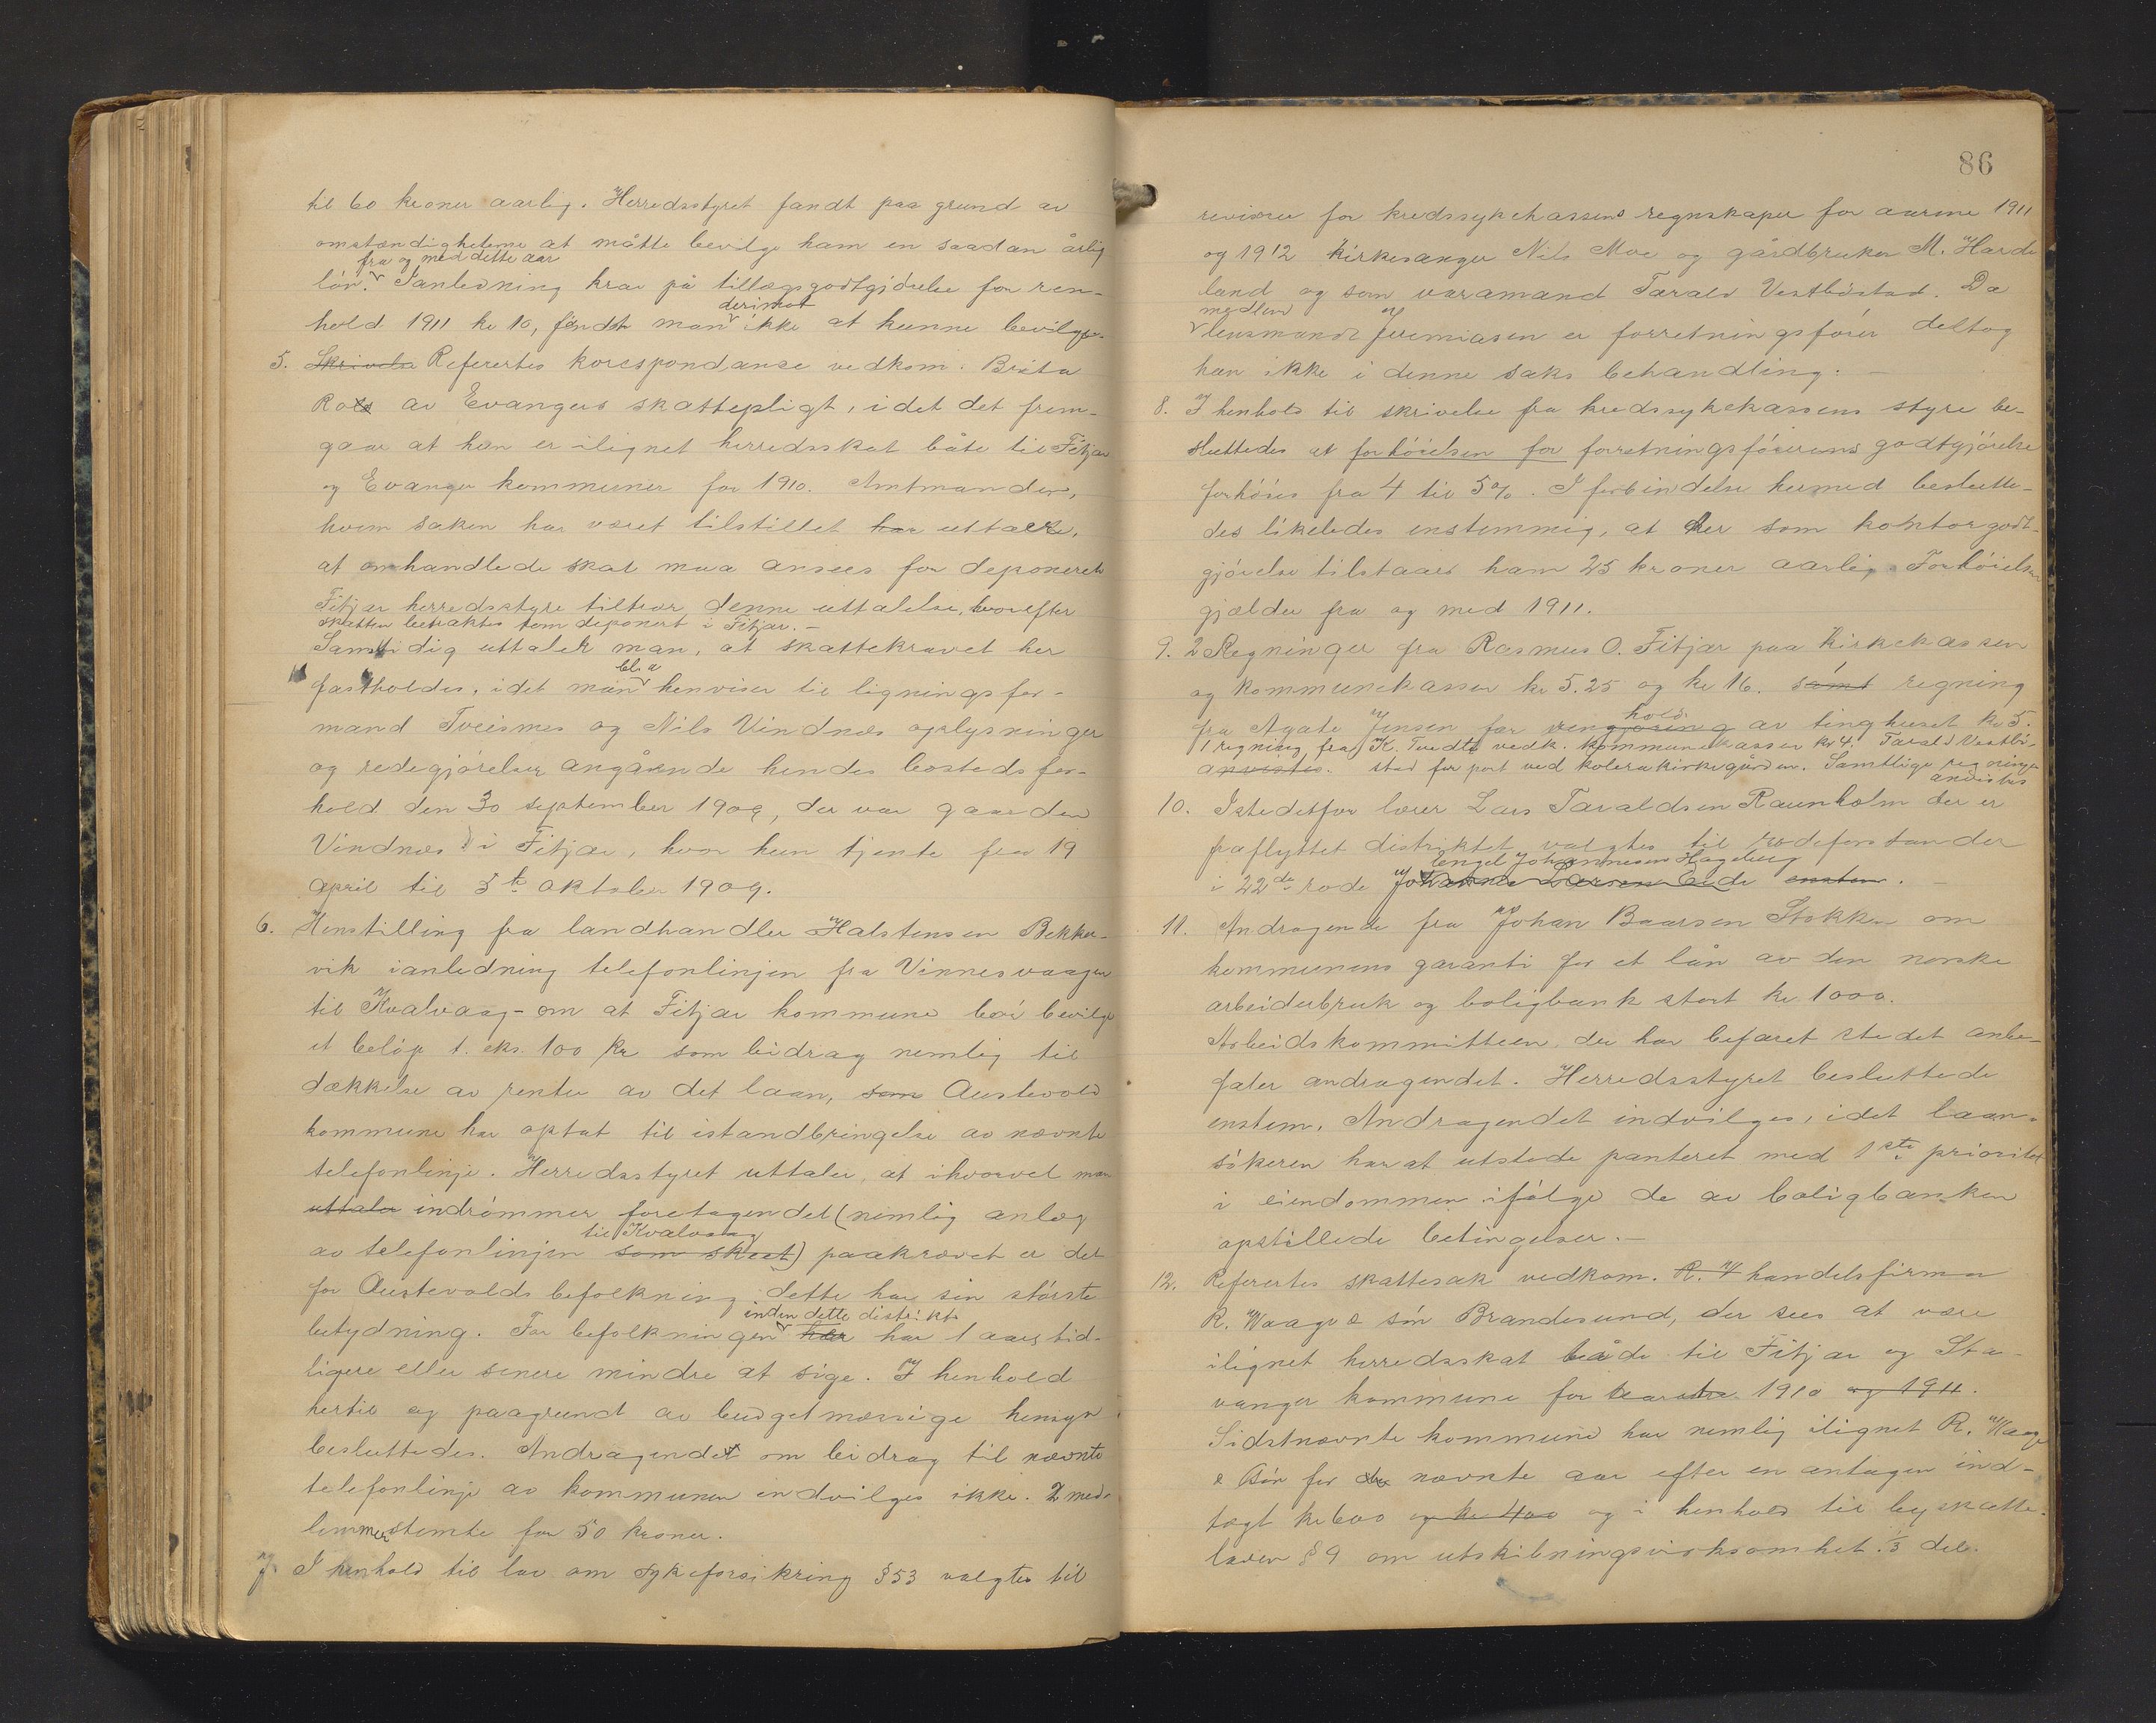 til 60 kroner aarlig. Herredsstyret fandt paa grund av
omstændigheterne at måtte bevilge ham en saadan årlig
fra og med dette aar
lön. Ianledning krav på tillægsgodtgjörelse for ren-
derimot
hold 1911 kr 10, fandt man ikke at kunne bevilges.
5. Skrivelse Referertes korespondanse vedkom. Brita
av Evangers skattepligt, idet det frem-
gaar at hun er ilignet herredsskat båte til Fitjar
og Evanger kommuner for 1910. Amtmanden,
hvem saken har været tilstillet har uttalt,
at omhandlede skat maa ansees for deponeret
Fitjar herredsstyre tiltrær denne uttalelse, hvorefter
skatten betraktes som deponert i Fitjar. -
Samtidig uttaler man, at skattekravet her
bl. a
fastholdes, idet man henviser til ligningsfor-
mand Tveismes og Nils Vindnæs oplysninger
og redegjörelser angående hendes bostedsfor-
hold den 30 september 1909, der var gaarden
Vindnæs i Fitjar, hvor hun tjente fra 19
april til 5te oktober 1909.
6. Henstilling fra landhandler Halstensen Bekker-
vik ianledning telefonlinjen fra Vinnesvaagen
til Kvalvaag - om at Fitjar kommune bör bevilge
et belöp t. eks. 100 kr som bidrag nemlig til
dækkelse av renter av det laan, som Austevold
kommune har optat til istandbringelse av nævnte
telefonlinje. Herredsstyret uttaler, at ihvorvel man
uttaler indrömmer foretagendet (nemlig anlæg
til Kvalvaag
av telefonlinjen som skeet) paakrævet er det
for Austevolds befolkning dette har sin störste
inden dette distrikt
betydning. For befolkningen her har 1 aars tid-
ligere eller senere mindre at sige. I henhold
hertil og paagrund av budgetmæssige hensyn
besluttedes. Andragendet om bidrag til nævnte
telefonlinje av kommunen indvilges ikke. 2 med-
lemmer stemte for 50 kroner.
7. I henhold til lov om sykeforsikring § 53 valgtes til
86
revisorer for kredssykekassens regnskaper for aarene 1911
og 1912 kirkesanger Nils Moe og gårdbruker M. Harde
land og som varamand Tarald Vestböstad. Da
medlem
lensmand Jeremiasen er forretningsförer deltog
han ikke i denne saks behandling. -
8. I henhold til skrivelse fra kredssykekassens styre be-
sluttedes at forhöielsen for forretningsförerens godtgjörelse
forhöies fra 4 til 5%. I forbindelse hermed beslutte-
des likeledes enstemmig, at der som kontorgodt-
gjörelse tilstaaes ham 25 kroner aarlig. Forhöielsen
gjælder fra og med 1911.
9. 2 Regninger fra Rasmus O. Fitjar paa Kirkekassen
og kommunekassen kr 5.25 og kr 16. samt regning
hold
fra Agate Jensen for rengjöring av tinghuset kr 5.
1 regning fra K. Tvedte vedk. kommunekassen kr 4. Tarald Vestbö-
anvistes. stad for port ved kolerakirkegården. Samtlige regninger
anvistes
10. Istedetfor lærer Lars Taraldsen Raunholm der er
fraflyttet distriktet valgtes til rodeforstander
Engel Johannesen Hageberg
i 22de rode Johannes Larsen Eide enstem. -
11. Andragende fra Johan Baarsen Stokken om
kommunens garanti for et lån av den norske
arbeiderbruk og boligbank stort kr. 1000.
Arbeidskommitteen der har befaret stedet anbe-
faler andragendet. Herredsstyret besluttede
enstem. Andragendet indvilges, idet laan-
sökeren har at utstede panteret med 1ste prioritet
i eiendommen ifölge de av boligbanken
opstillede betingelser. -
12. Referertes skattesak vedkom. R. W handelsfirma
R. Waage & sön Brandesund, der sees at være
ilignet herredsskat både til Fitjar og Sta-
vanger kommune for 1910 og 1911.
Sidstnævnte kommune har nemlig ilignet R. Waage
& Sön for de nævnte aar efter en antagen ind-
tægt kr 600 og kr 400 og i henhold til byskatte-
loven § 9 om utskibningsvirksomhet. 1/3 del.